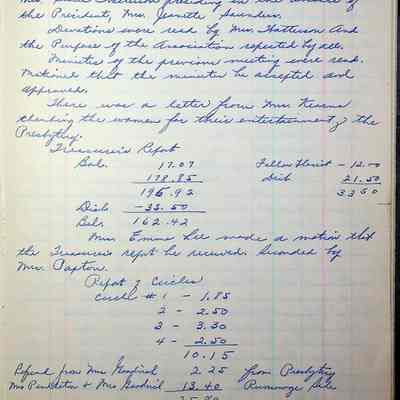 presiding in the absence of
the President, Mrs. Jeanette Saunders.
Devotions were read by Mrs. Patterson And
the Purpose of the Association repeated by all.
Minutes of the previous meeting were read.
Motioned that the minutes be accepted and
approved.
There was a letter from Mrs. Kearns
thanking the women for their entertainment of the
Presbytery.
Treasurer's Repot
Bal. 17.07 Fuller Florist - 12.00
178.85 Dish 21.50
195.92 33 50
Disb -33.50
Bal. 162.42
Mrs. Emma Lee made a motion that
the Treasurer's repot be received. Seconded by
Mrs. Paxton.
Repot of Circles
Circle # 1 - 1.85
2 - 2.50
3 - 3.30
4 - 2.50
10.15
Refund from Mrs 2.25 from Presbytery
Mrs Pendleton & Mrs 13.40 Rummage Sale
25.80